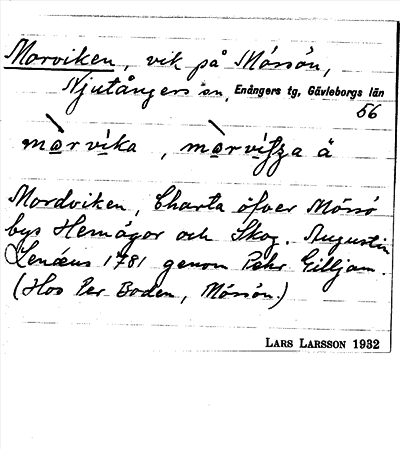 Morviken, vik på Mössön,
Njutångers sn, Enångers tg, Gävleborgs län
56
mo̲rvi̲ka, mo̲rvi̲ a
Mordviken, Charta öfver Mössö
bys Hemägor och Skog. Augustin
Lenæus 1781 genom Pehr Gilljam.
(Hos Per Boden, Mössön.)
LARS LARSSON 1932